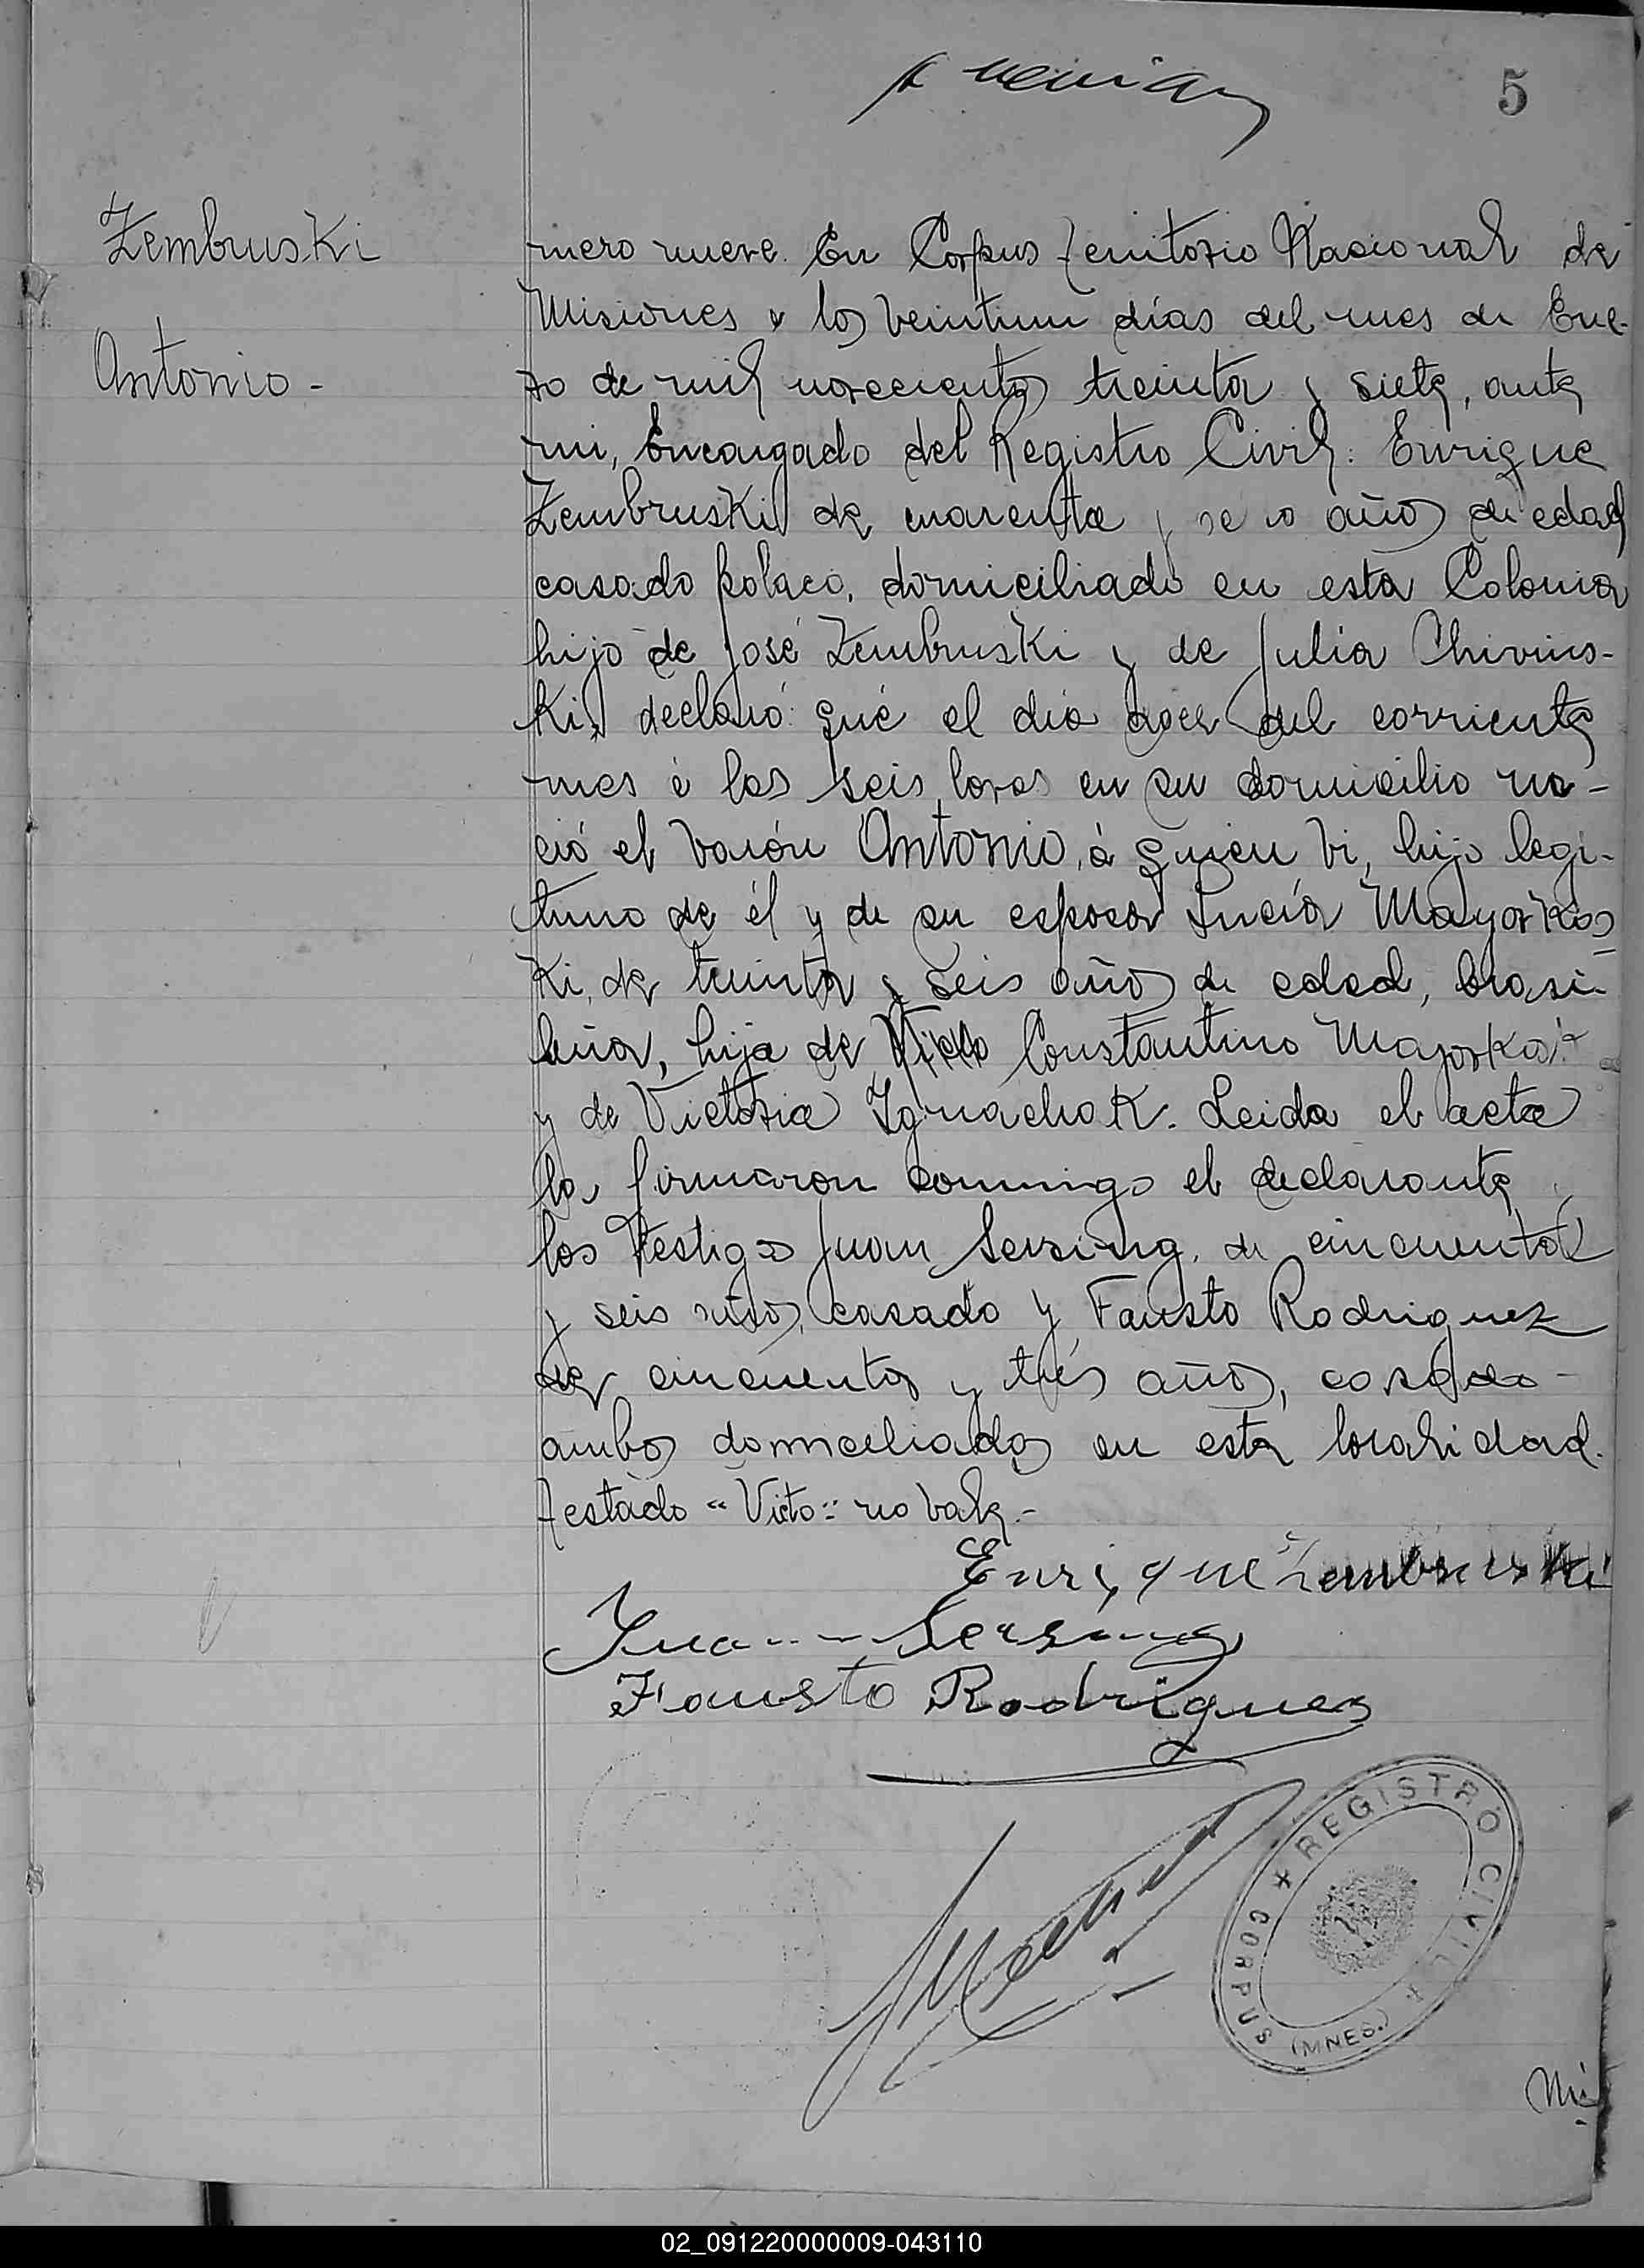 5
Zembruski
Antonio -
mero nueve. En Corpus territorio Nacional de
Misiones a los veintiun días del mes de Ene-
ro de mil novecientos treinta y siete, ante
mi, Encargado del Registro Civil: Enrique
Zembruski de cuarenta y años de edad
casado polaco, domiciliado en esta Colonia
hijo de José Zembruski y de Julia Chivins-
ki, declaró: qué el dia doce del corriente
mes á las seis horas en su domicilio na-
ció el varón Antonio, á quien vi, hijo legi-
timo de él y de su esposa Lucía Mayorkos
ki, de treinta y seis años de edad, brasi-
leña, hija de Victo Constantino
y de Victoria Ignachok. Leida el acta
la firmaron conmigo el declarante y
los testigos Juan Sersing, de cincuenta
y seis años, casado y Fausto Rodriguez
de cincuenta y trés años, casado -
ambos domiciliados en esta localidad.
testado "Victo" no vale.-
Enrique Zembruski
Juan Sersing
Fausto Rodriguez
REGISTRO CIVIL
CORPUS (MNES.)
Nú
02_091220000009-043110